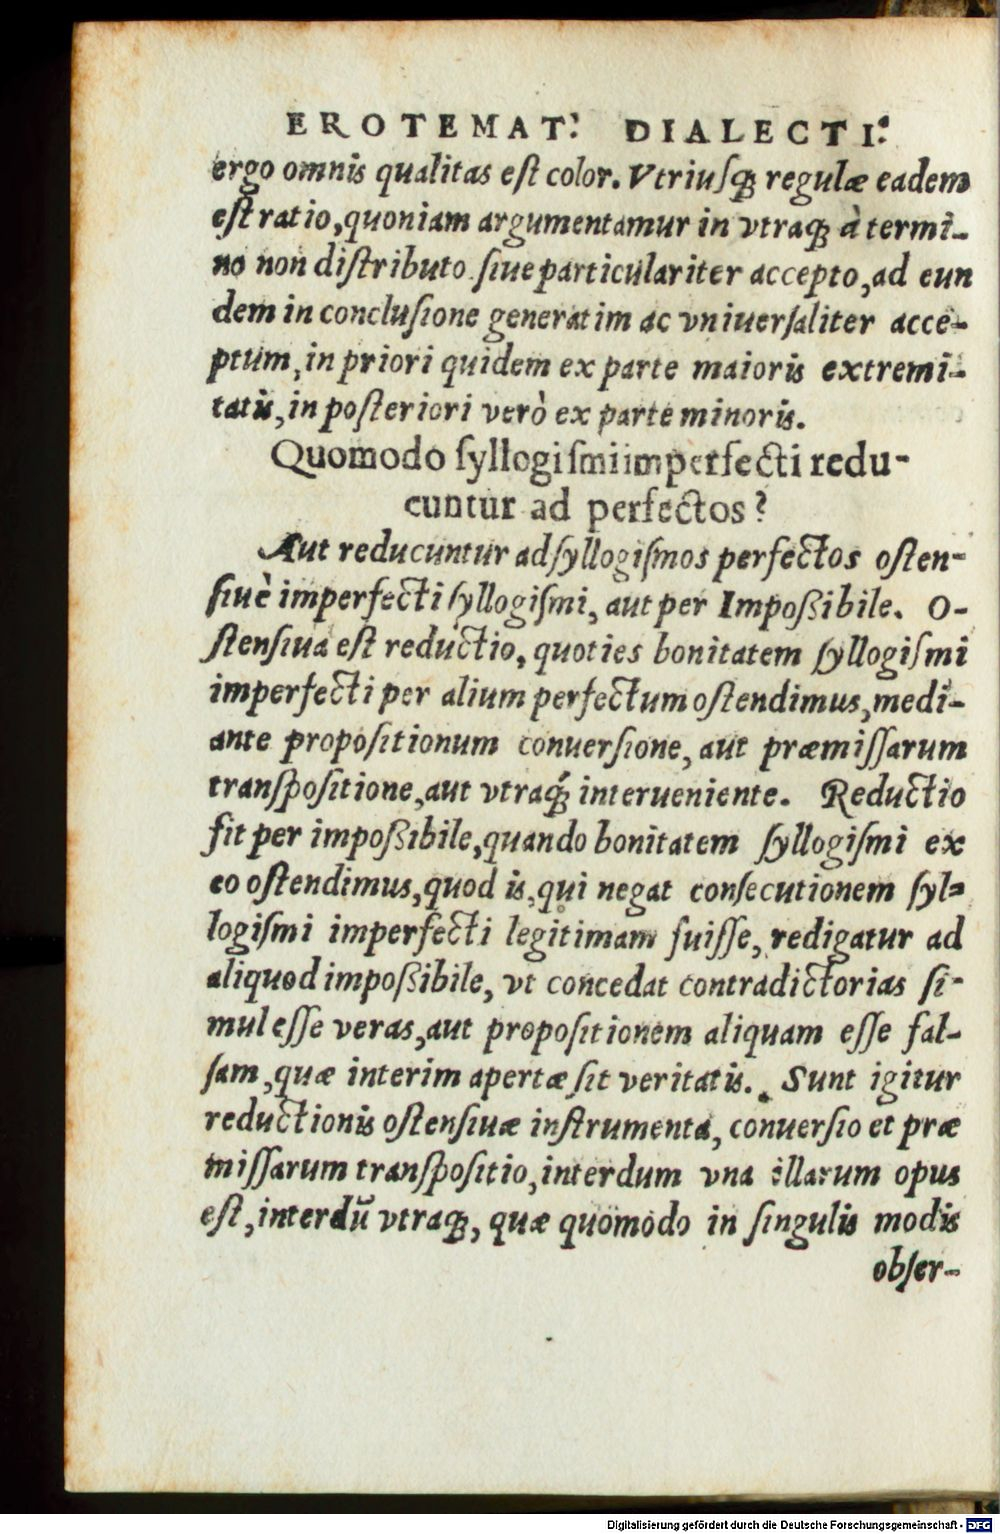 EROTEMAT: DIALECTI:
ergo omnis qualitas est color. Vtriusq́; regulæ eadem
est ratio, quoniam argumentamur in vtraq; à termi-
no non distributo siue particulariter accepto, ad eun
dem in conclusione generatim ac vniuersaliter acce-
ptum, in priori quidem ex parte maioris extremi-
tatis, in posteriori verò ex parte minoris.
Quomodo syllogismi imperfecti redu-
cuntur ad perfectos?
Aut reducuntur ad syllogismos perfectos osten-
siuè imperfecti syllogismi, aut per Impoßibile. O-
stensiua est reductio, quoties bonitatem syllogismi
imperfecti per alium perfectum ostendimus, medi-
ante propositionum conuersione, aut præmissarum
transpositione, aut vtraq́; interueniente. Reductio
fit per impoßibile, quando bonitatem syllogismi ex
eo ostendimus, quod is, qui negat consecutionem syl-
logismi imperfecti legitimam fuisse, redigatur ad
aliquod impoßibile, vt concedat contradictorias si-
mul esse veras, aut propositionem aliquam esse fal-
sam, quæ interim apertæ sit veritatis. Sunt igitur
reductionis ostensiuæ instrumenta, conuersio et præ
missarum transpositio, interdum vna illarum opus
est, interdū vtraq;, quæ quomodo in singulis modis
obser-
Digitalisierung gefördert durch die Deutsche Forschungsgemeinschaft - DFG